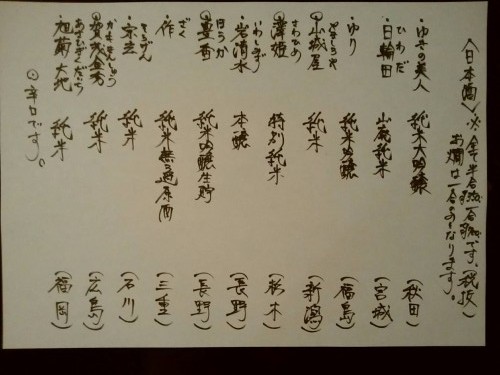 〈日本酒〉※全て半合、一合です。(税抜)
お燗は一合からとなります。
・ゆきの美人 純米大吟醸 (秋田)
ひわだ
・日輪田 山廃純米 (宮城)
・ゆり 純米吟醸 (福島)
○山城屋 純米 (新潟)
さわひめ
○澤姫 特別純米 (栃木)
いわしみず
・岩清水 本醸 (長野)
ほうか
・豊香 純米吟醸生貯 (長野)
ざく
・作 純米無濾過原酒 (三重)
そうげん
・宗玄 純米 (石川)
かもきんしゅう
○賀茂金秀 純米 (広島)
・旭菊 大地 純米 (福岡)
○辛口です。